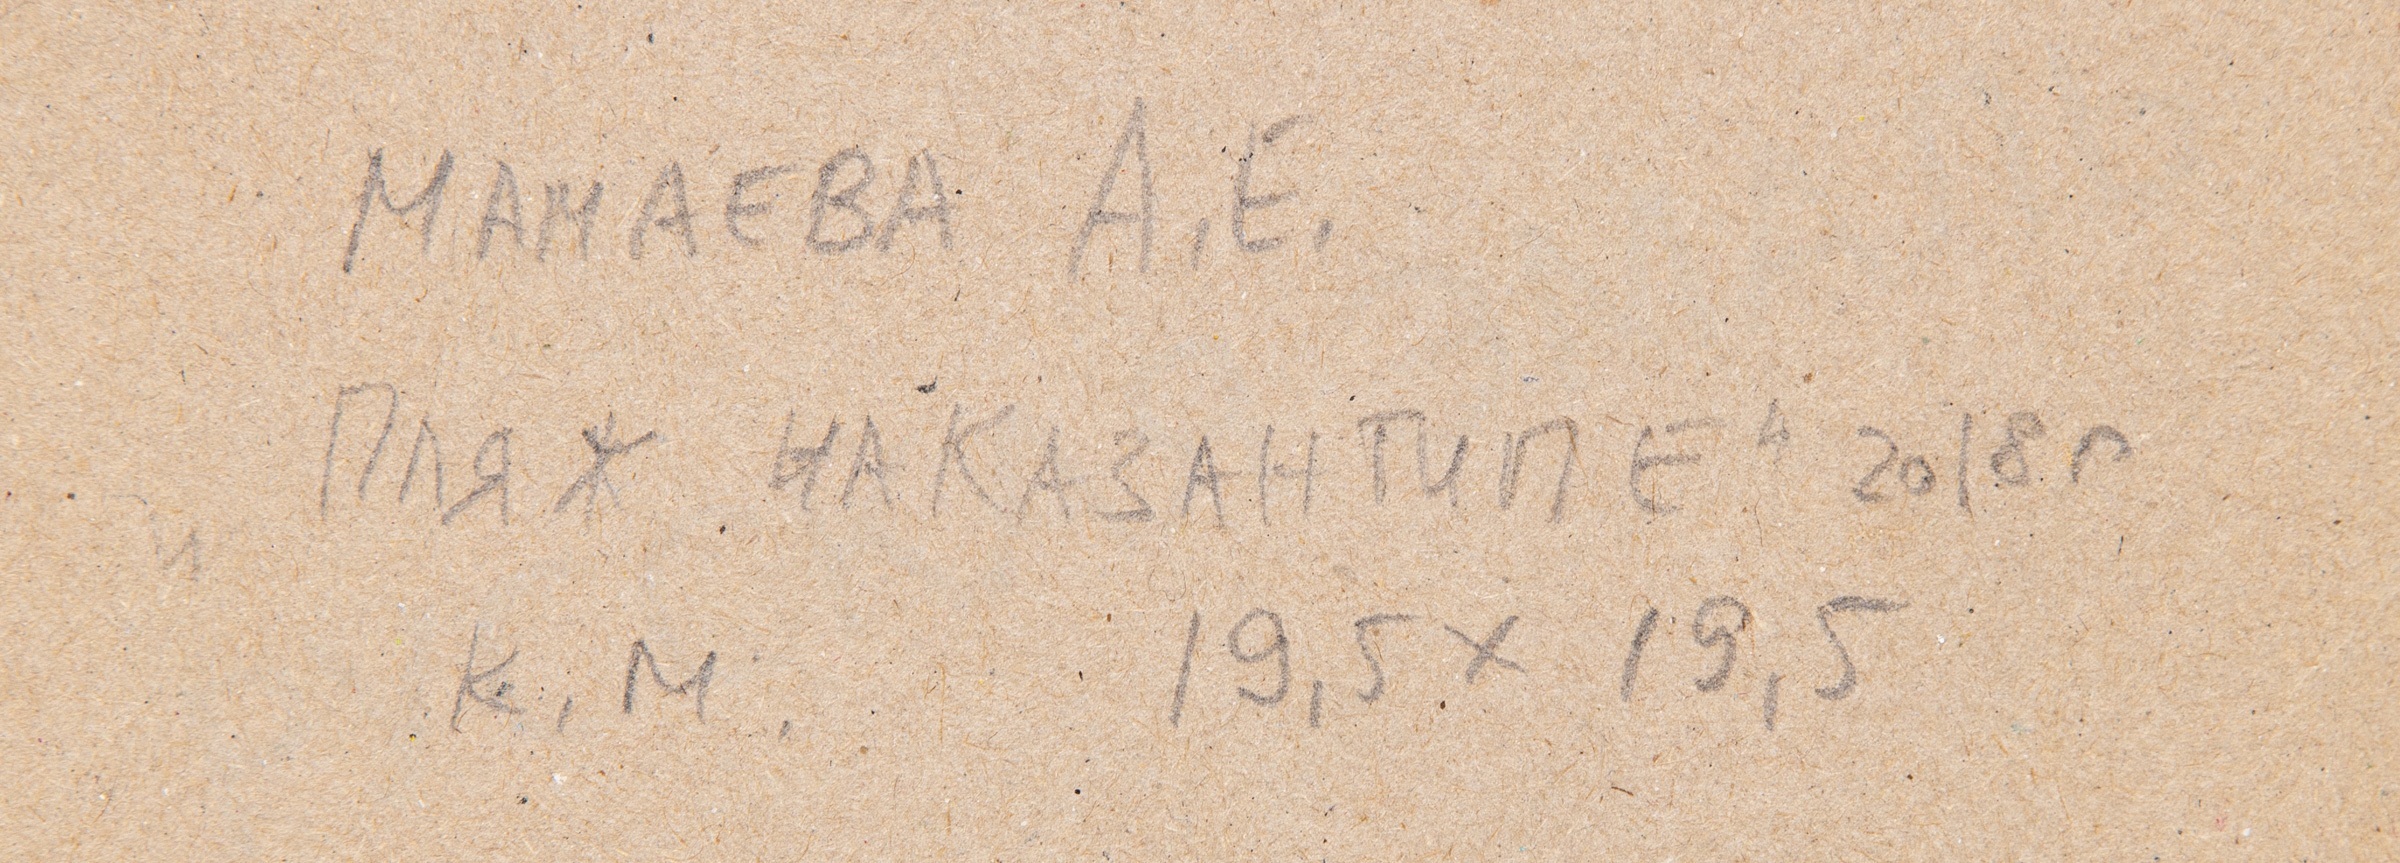 МАНАЕВА А.Е.
„ПЛЯЖ НАКАЗАНТИПЕ" 2018 г
к.м. 19,5 x 19,5